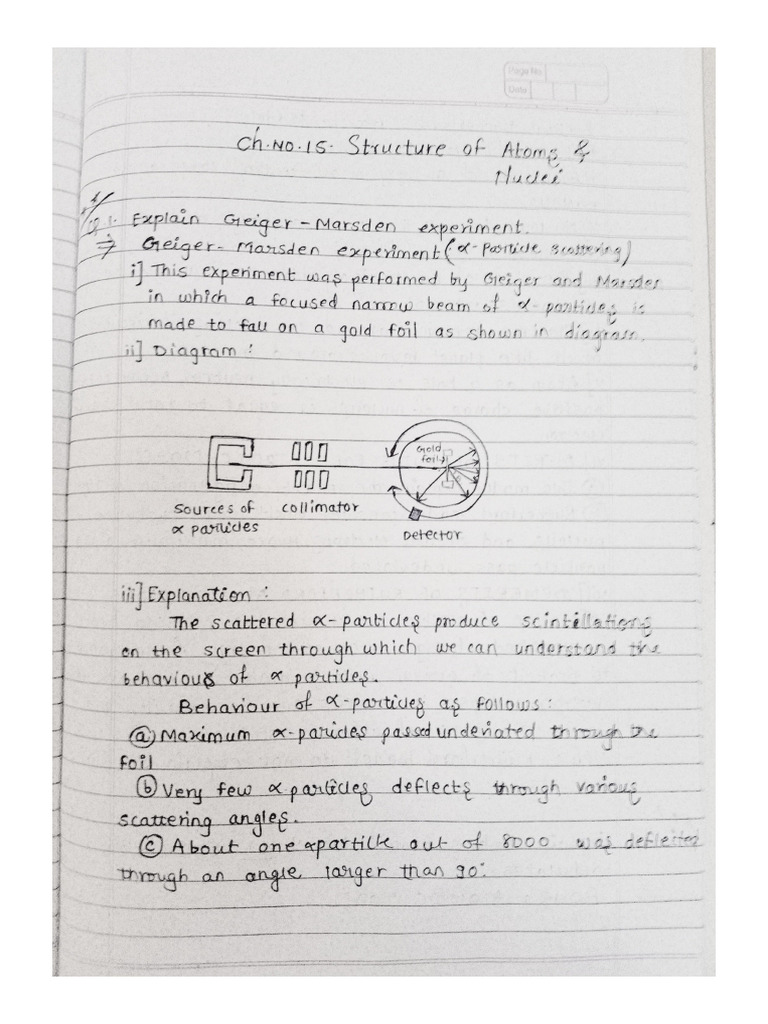 Page No.
Date
Ch.No.15. Structure of Atoms &
Nuclei
Q.1. Explain Geiger-Marsden experiment.
⇒ Geiger-Marsden experiment (α-Particle scattering)
i] This experiment was performed by Geiger and Marsden
in which a focused narrow beam of α-particles is
made to fall on a gold foil as shown in diagram.
ii] Diagram :
Gold
foil
Sources of
α particles
collimator
Detector
iii] Explanation :
The scattered α-particles produce scintillations
on the screen through which we can understand the
behaviours of α particles.
Behaviour of α-particles as follows :
(a) Maximum α-paricles passed undeviated through the
foil
(b) Very few α particles deflects through various
scattering angles.
(c) About one α partilk out of 8000 was deflected
through an angle larger than 90°